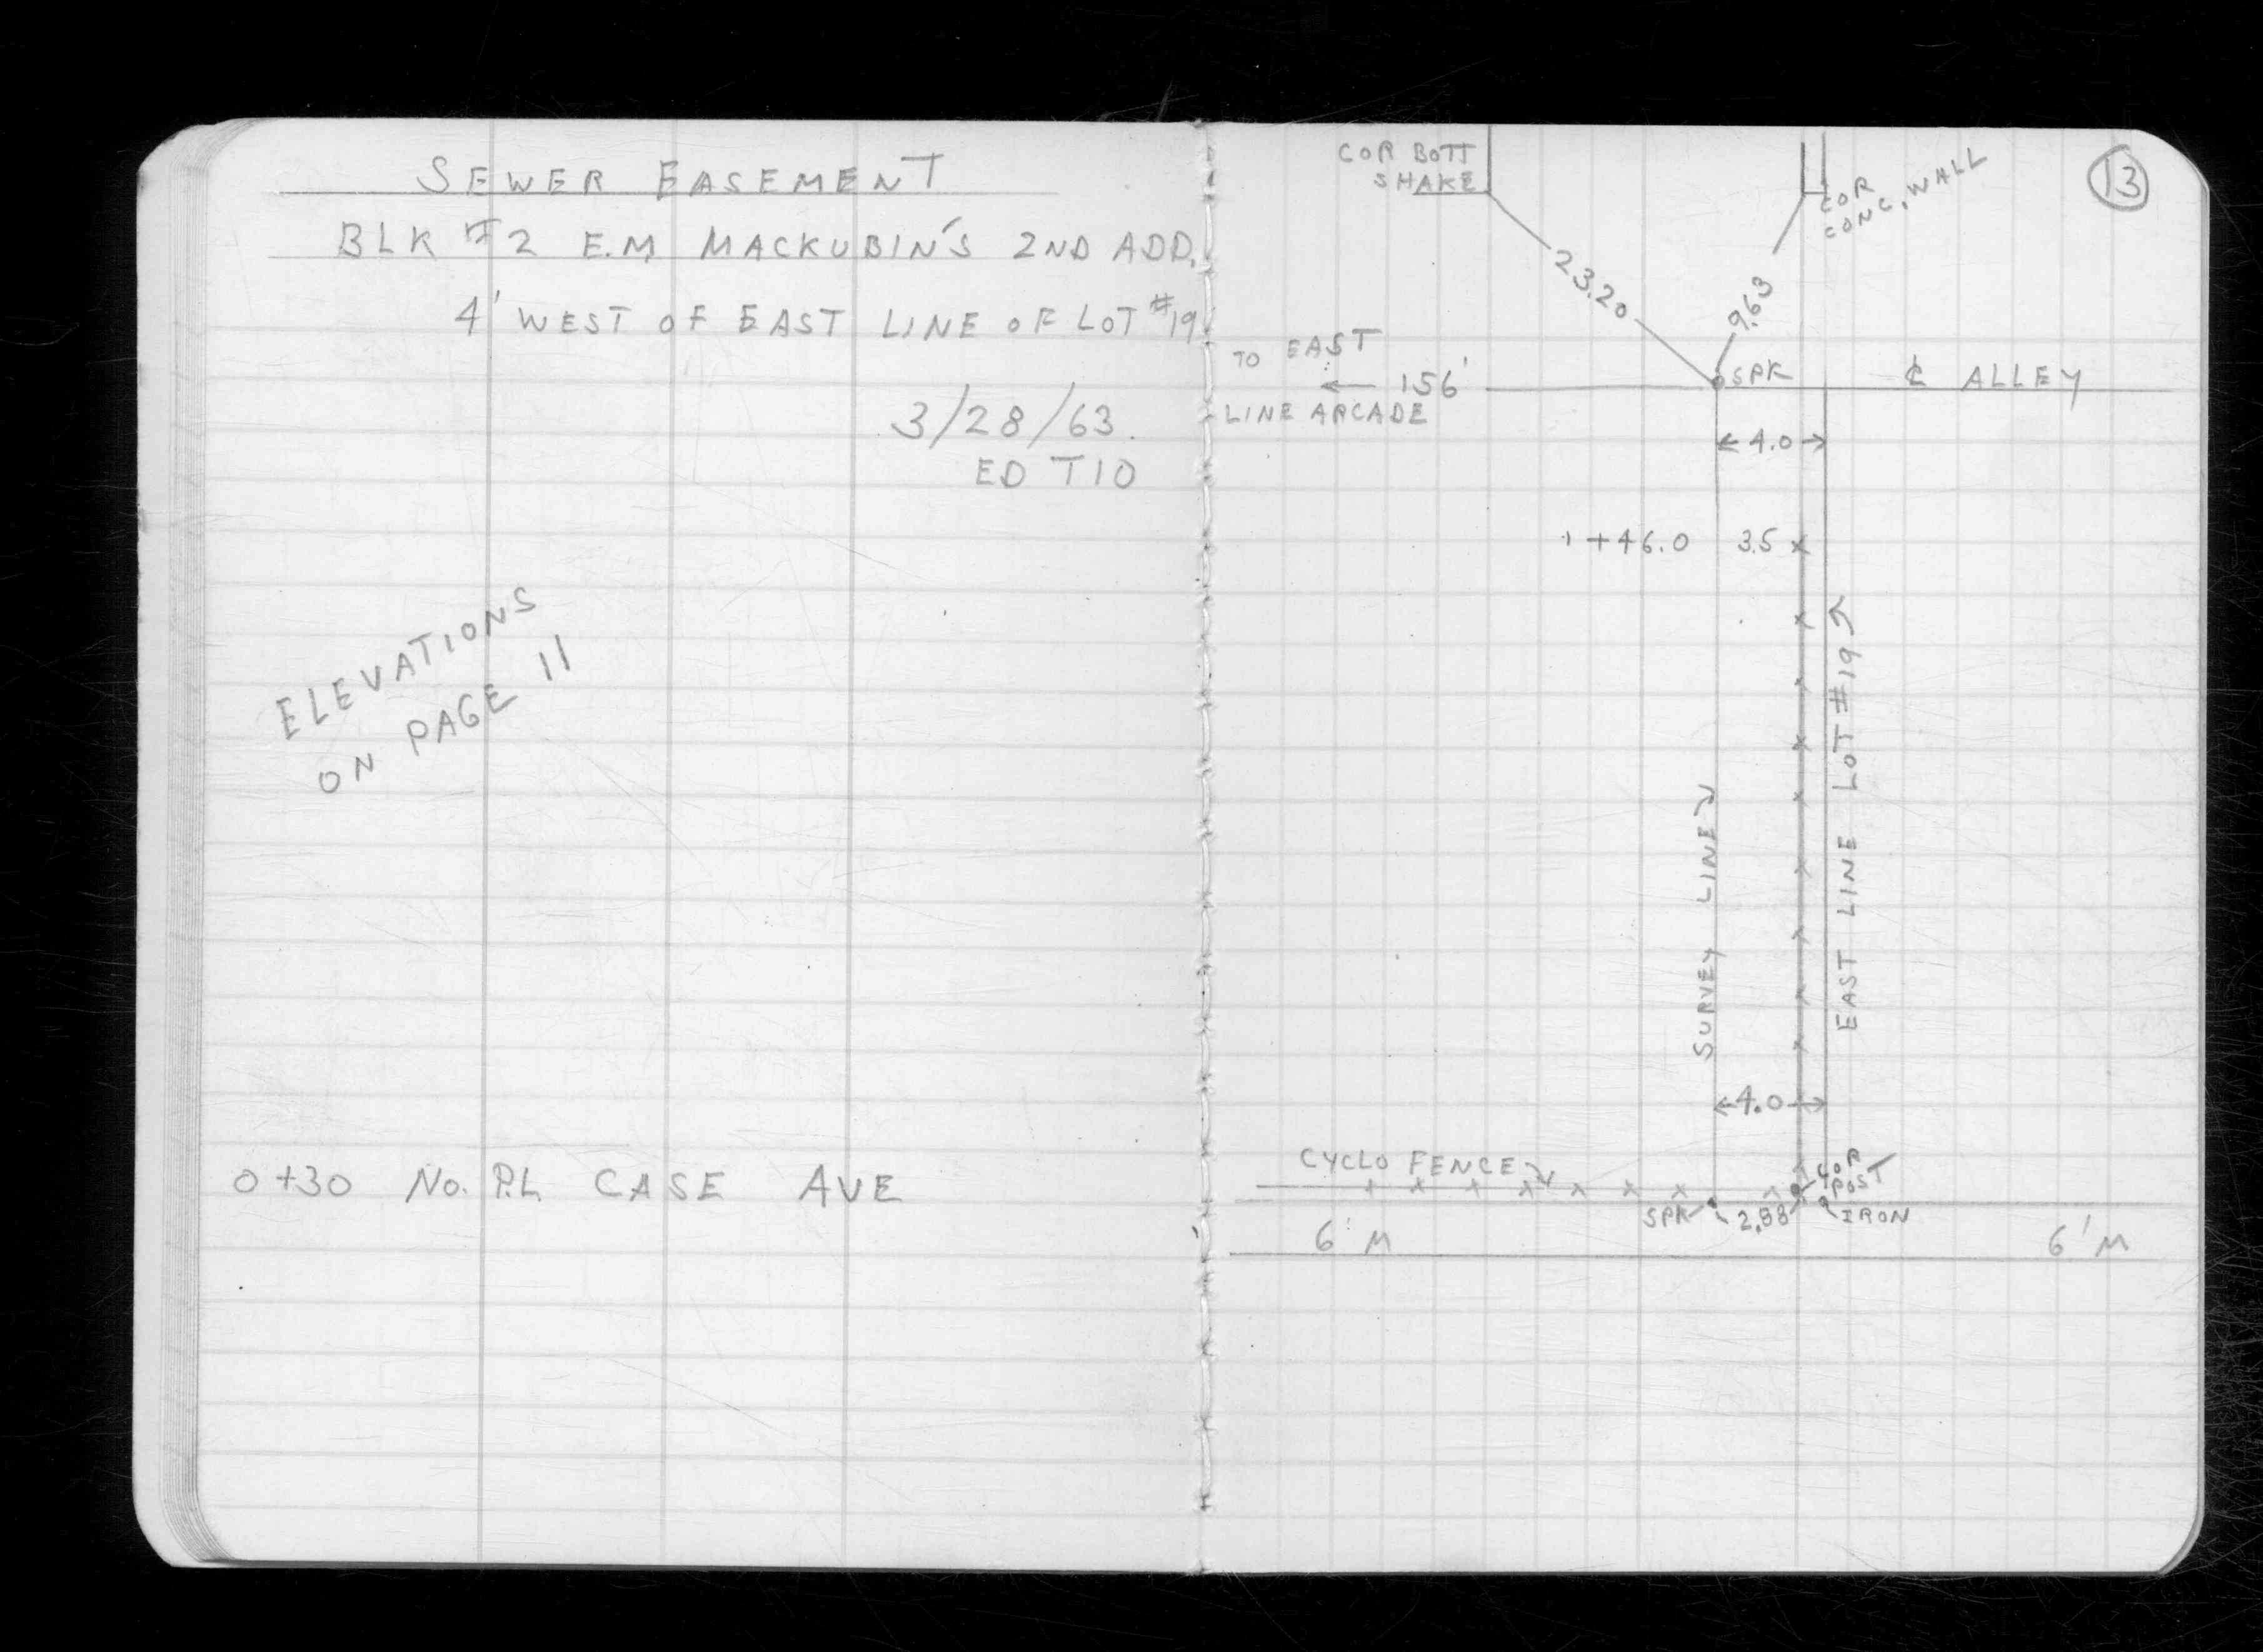 SEWER EASEMENT
BLK #2 E.M. MACKUBIN'S 2ND ADD.
4' WEST OF EAST LINE OF LOT #19
3/28/63.
ED TIO
ELEVATIONS
ON PAGE 11
0+30 No. P.L. CASE AVE
13
COR BOTT
SHAKE
COR
CONC. WALL
23.20
9.63
TO EAST
← 156'
LINE ARCADE
SPK
℄ ALLEY
← 4.0 →
1+46.0 3.5
EAST LINE LOT #19
SURVEY LINE
← 4.0 →
CYCLO FENCE
COR
POST
SPK
2.88
IRON
6' M
6' M